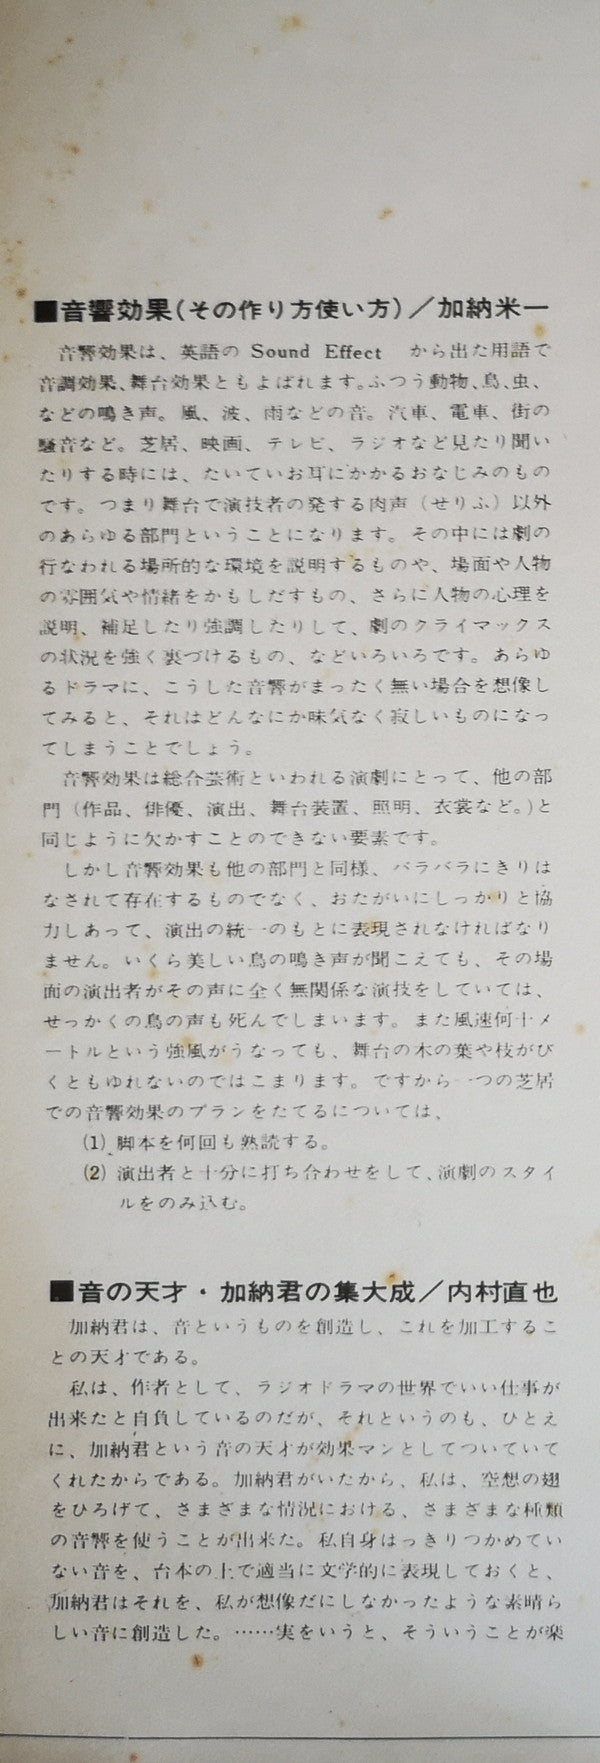 ■音響効果(その作り方使い方)／加納米一
音響効果は、英語の Sound Effect から出た用語で
音調効果、舞台効果ともよばれます。ふつう動物、鳥、虫、
などの鳴き声。風、波、雨などの音。汽車、電車、街の
騒音など。芝居、映画、テレビ、ラジオなど見たり聞い
たりする時には、たいていお耳にかかるおなじみのもの
です。つまり舞台で演技者の発する肉声（せりふ）以外
のあらゆる部門ということになります。その中には劇の
行なわれる場所的な環境を説明するものや、場面や人物
の雰囲気や情緒をかもしだすもの、さらに人物の心理を
説明、補足したり強調したりして、劇のクライマックス
の状況を強く裏づけるもの、などいろいろです。あらゆ
るドラマに、こうした音響がまったく無い場合を想像し
てみると、それはどんなにか味気なく寂しいものになっ
てしまうことでしょう。
音響効果は総合芸術といわれる演劇にとって、他の部
門（作品、俳優、演出、舞台装置、照明、衣裳など。）と
同じように欠かすことのできない要素です。
しかし音響効果も他の部門と同様、バラバラにきりは
なされて存在するものでなく、おたがいにしっかりと協
力しあって、演出の統一のもとに表現されなければなり
ません。いくら美しい鳥の鳴き声が聞こえても、その場
面の演出者がその声に全く無関係な演技をしていては、
せっかくの鳥の声も死んでしまいます。また風速何十メ
ートルという強風がうなっても、舞台の木の葉や枝がび
くともゆれないのではこまります。ですから一つの芝居
での音響効果のプランをたてるについては、
(1) 脚本を何回も熟読する。
(2) 演出者と十分に打ち合わせをして、演劇のスタイ
ルをのみ込む。
■音の天才・加納君の集大成／内村直也
加納君は、音というものを創造し、これを加工するこ
との天才である。
私は、作者として、ラジオドラマの世界でいい仕事が
出来たと自負しているのだが、それというのも、ひとえ
に、加納君という音の天才が効果マンとしてついていて
くれたからである。加納君がいたから、私は、空想の翅
をひろげて、さまざまな情況における、さまざまな種類
の音響を使うことが出来た。私自身はっきりつかめてい
ない音を、台本の上で適当に文学的に表現しておくと、
加納君はそれを、私が想像だにしなかったような素晴ら
しい音に創造した。……実をいうと、そういうことが楽